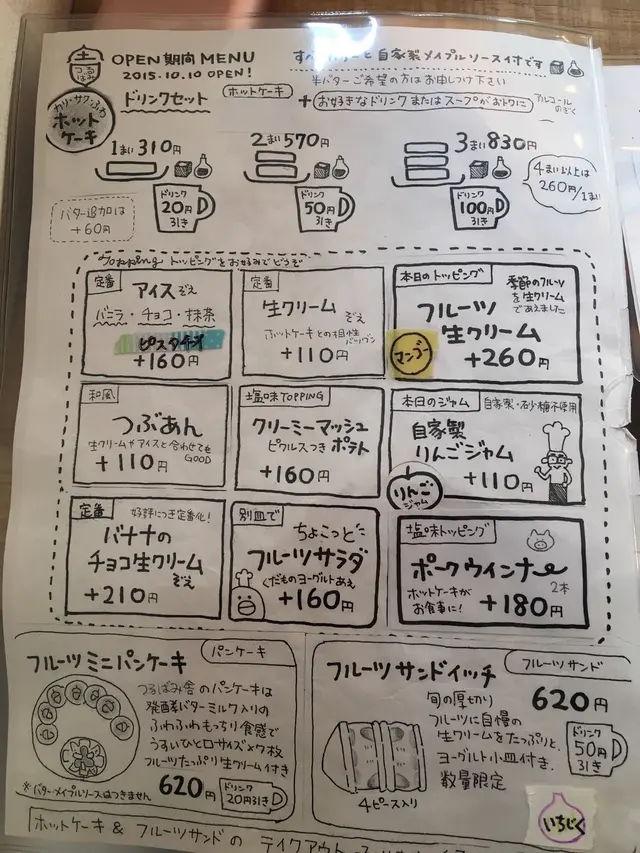 OPEN期間 MENU
2015.10.10 OPEN!
すべてバターと自家製メイプルソース付です
半バターご希望の方はお申しつけ下さい
カリ・サク・ふわ
ホット
ケーキ
ドリンクセット
ホットケーキ
+ お好きなドリンクまたはスープがおトクに
アルコールのぞく
1まい310円
2まい570円
3まい830円
4まい以上は
260円/1まい
ドリンク
20円
引き
ドリンク
50円
引き
ドリンク
100円
引き
バター追加は
+60円
Topping トッピングをお好みでどうぞ
定番
アイスぞえ
バニラ・チョコ・抹茶
ピスタチオ
+160円
定番
生クリーム
ぞえ
ホットケーキとの相性
バツグン
+110円
本日のトッピング
季節のフルーツ
を生クリーム
であえました
フルーツ
生クリーム
マンゴー
+260円
和風
つぶあん
生クリームやアイスと合わせても
GOOD
+110円
塩味TOPPING
クリーミーマッシュ
ピクルスつき ポテト
+160円
本日のジャム
自家製・砂糖不使用
自家製
りんごジャム
りんご
ジャム
+110円
定番
好評につき定番化!
バナナの
チョコ生クリーム
ぞえ
+210円
別皿で
ちょこっと
フルーツサラダ
くだものヨーグルトあえ
+160円
塩味トッピング
ポークウインナー
2本
ホットケーキが
お食事に!
+180円
フルーツミニパンケーキ
パンケーキ
つるばみ舎のパンケーキは
発酵バターミルク入りの
ふわふわもっちり食感で
うすいひと口サイズ×7枚
フルーツたっぷり生クリーム付き
※バターメイプルソースはつきません
620円
ドリンク
20円引き
フルーツサンドイッチ
フルーツサンド
旬の厚切り
620円
フルーツに自慢の
生クリームをたっぷりと.
ヨーグルト小皿付き.
数量限定
ドリンク
50円
引き
4ピース入り
いちじく
ホットケーキ & フルーツサンドの テイクアウト